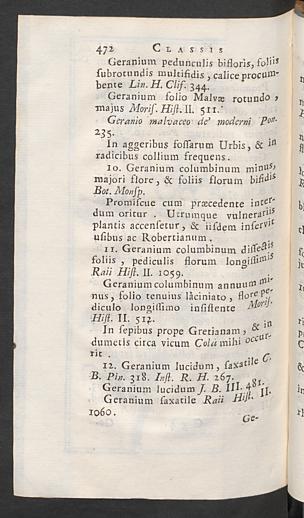 472 CLASSIS
Geranium pedunculis bifloris, foliis
subrotundis multifidis, calice procum-
bente Lin. H. Clif. 344.
Geranium folio Malvæ rotundo,
majus Moris. Hist. II. 511.
Geranio malvaceo de' moderni Pon.
235.
In aggeribus fossarum Urbis, & in
radicibus collium frequens.
10. Geranium columbinum minus,
majori flore, & foliis florum bifidis
Bot. Monsp.
Promiscue cum præcedente inter-
dum oritur. Utrumque vulnerariis
plantis accensetur, & iisdem inservit
usibus ac Robertianum.
11. Geranium columbinum dissectis
foliis, pediculis florum longissimis
Raii Hist. II. 1059.
Geranium columbinum annuum mi-
nus, folio tenuius laciniato, flore pe-
diculo longissimo insistente Moris.
Hist. II. 512.
In sepibus prope Gretianam, & in
dumetis circa vicum Cola mihi occur-
rit.
12. Geranium lucidum, saxatile C.
B. Pin. 318. Inst. R. H. 267.
Geranium lucidum J. B. III. 481.
Geranium saxatile Raii Hist. II.
1060.
Ge-